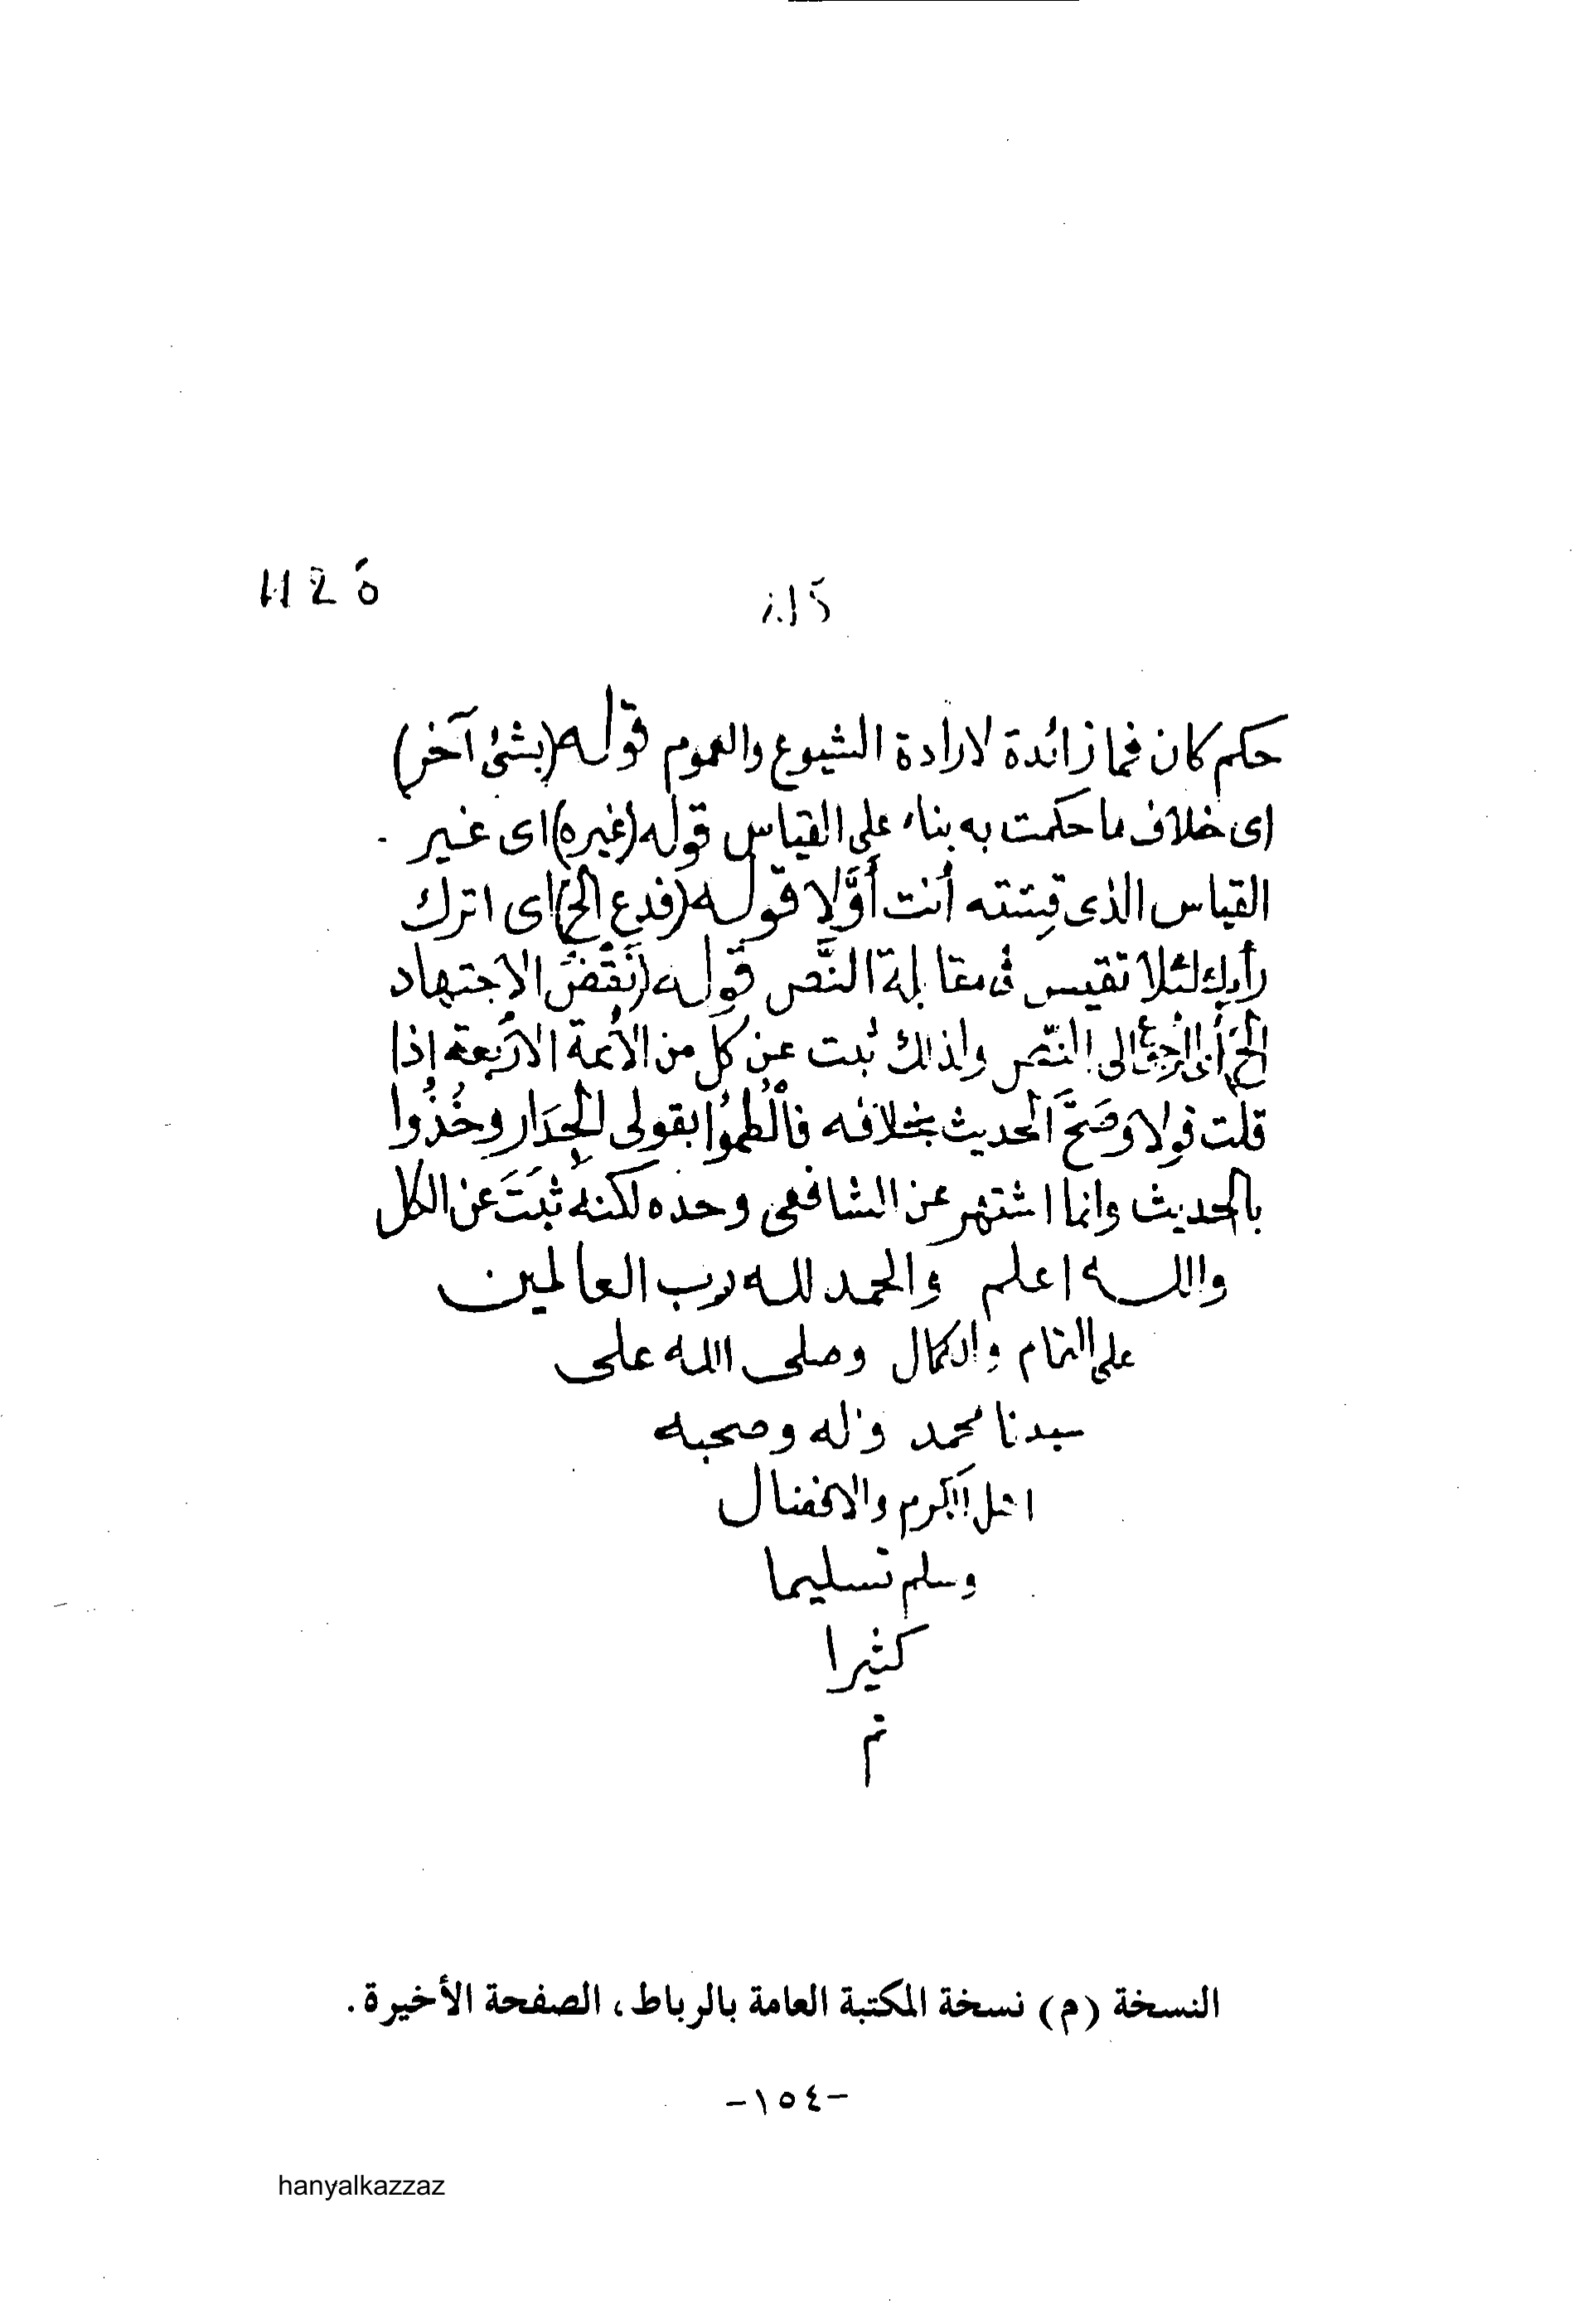 حكم كان فما زائدة لارادة الشيوع والعموم قوله (بشئ آخر)
اى خلاف ما حكمت به بناء على القياس قوله (غيره) اى غير
القياس الذى قسته أنت أَوَّلا قوله (فدع الخ) اى اترك
رأيك لئلا تقيس فى مقابلة النَّص قوله (نَقْضُ الاجتهاد
الخ) أى الرجوع الى النَّص ولذلك ثبت عن كل من الأئمة الأربعة إذا
قلت قولا وصَحَّ الحديث بخلافه فالْطموُا بقولى الجِدَار وخُذُوا
بالحديث وانما اشتهر عن الشافعى وحده لكنه ثبَتَ عن الكل
والله اعلم والحمد لله رب العالمين
على التمام والكمال وصلى الله على
سيدنا محمد وآله وصحبه
الكرم والافضال
وسلم تسليما
كثيرا
تم
النسخة (م) نسخة المكتبة العامة بالرباط، الصفحة الأخيرة.
-١٥٤-
hanyalkazzaz